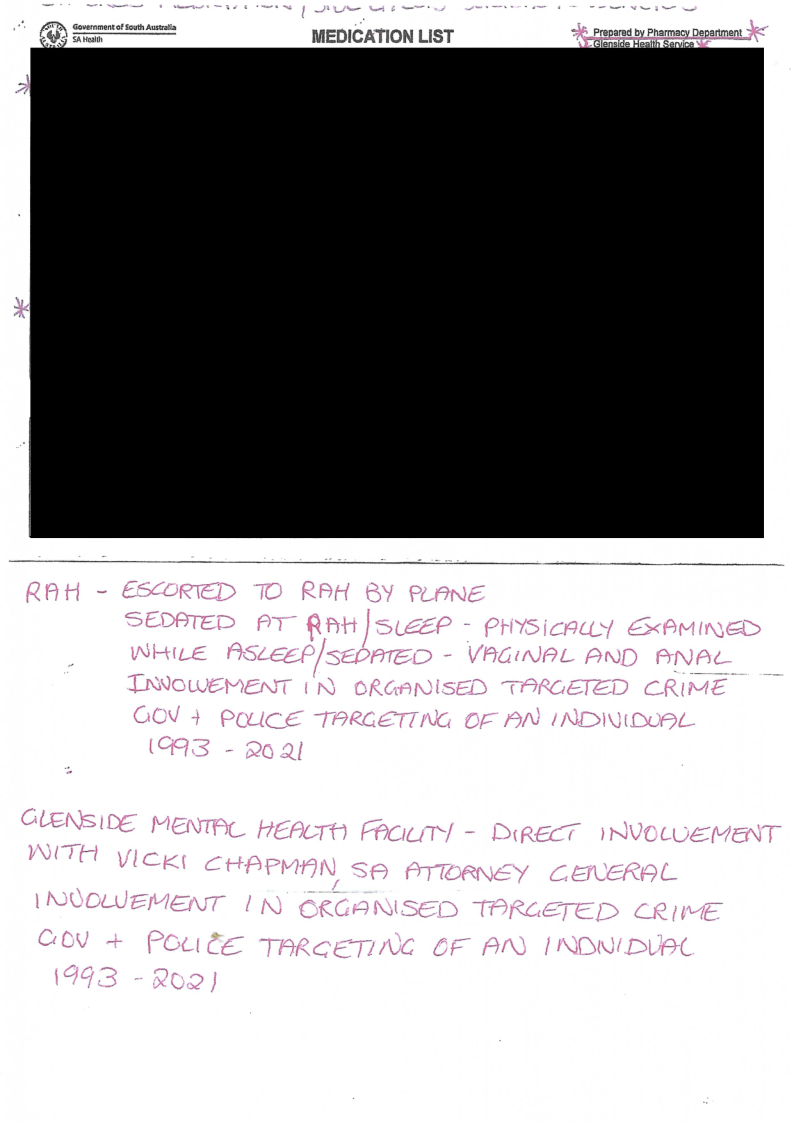 Government of South Australia
SA Health
MEDICATION LIST
Prepared by Pharmacy Department
Glenside Health Service
RAH - ESCORTED TO RAH BY PLANE
SEDATED AT RAH/SLEEP - PHYSICALLY EXAMINED
WHILE ASLEEP/SEDATED - VAGINAL AND ANAL
INVOLVEMENT IN ORGANISED TARGETED CRIME
GOV + POLICE TARGETTING OF AN INDIVIDUAL
1993 - 2021
GLENSIDE MENTAL HEALTH FACILITY - DIRECT INVOLVEMENT
WITH VICKI CHAPMAN, SA ATTORNEY GENERAL
INVOLVEMENT IN ORGANISED TARGETED CRIME
GOV + POLICE TARGETING OF AN INDIVIDUAL
1993 - 2021